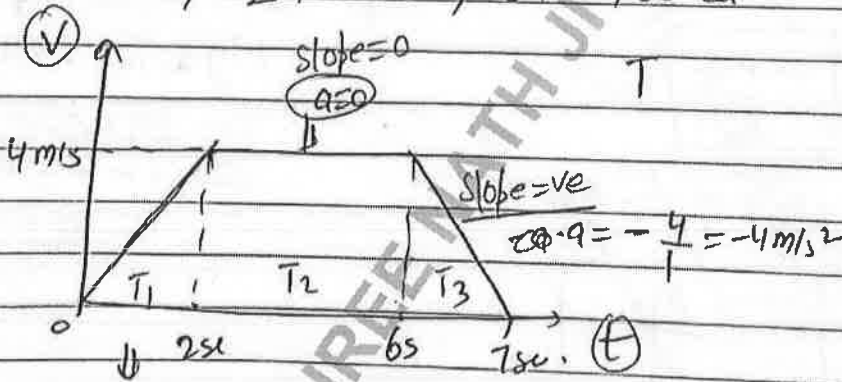 V
slope=0
a=0
T
4 m/s
slope=ve
a = - 4/1 = -4 m/s²
T1 T2 T3
0 2se 6s 7se. t
REE MATH JI